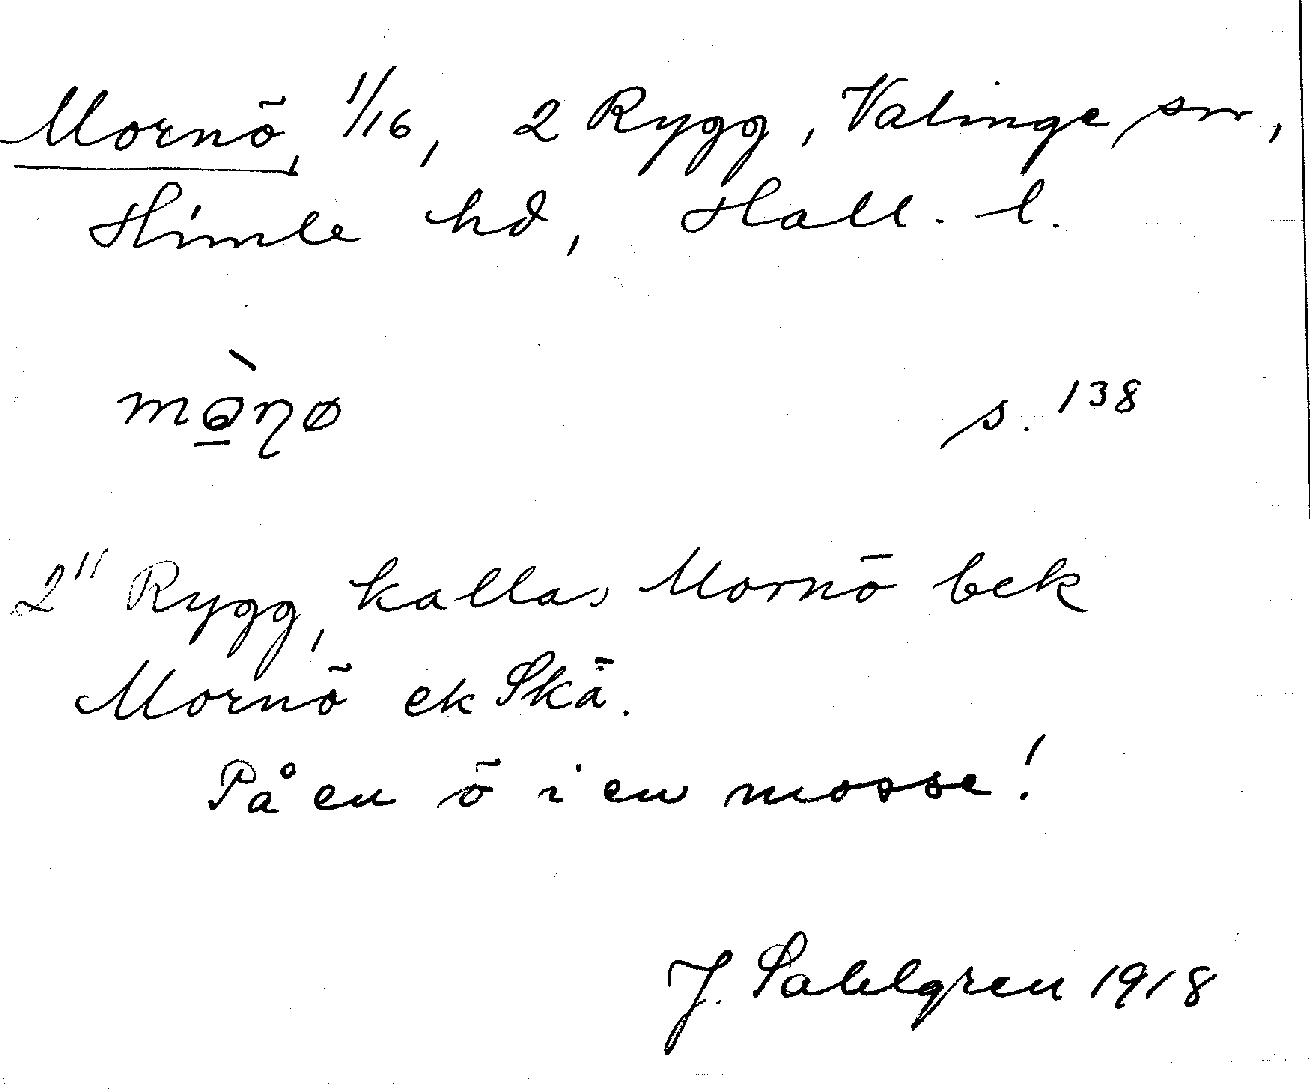 Mornö, 1/16, 2 Rygg, Valinge sn,
Himle hd, Hall. l.
s. 138
2" Rygg, kallas Mornö bek
Mornö ek Skä.
På en ö i en mosse!
J. Sahlgren 1918